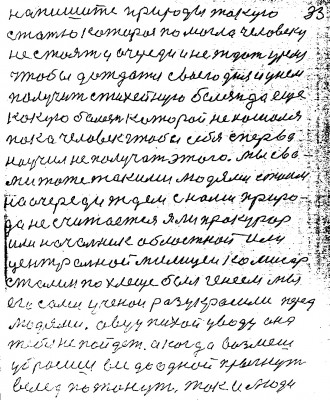 напишите природы такую 33
статью которая помогла человеку
не стоят у очереди и не ждат у ней
чтобы дождатся своего дня и у нем
получит стихейную болезн да еще
какую болезн которой не
пока человек чтобы себя сперва
научил не получат этого. мы са
ми тоже такими людями стоим
на очереди ждем с нами приро-
да не считается я ли прокурор
или началник областной или
централной милицеи комисар
сталин по хлеще был генеем мы
его сами ученои разукрасили пред
людями. а ву уводу она
тебе не пойдет. а когда возмеш
убросиш ей до одной прыгнут
вслед потонут. так и люди